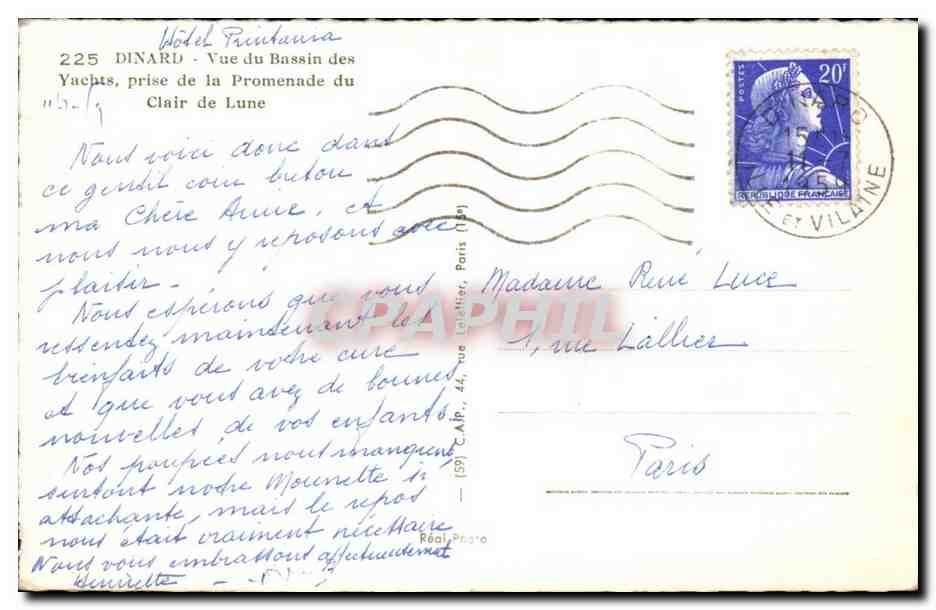 Hôtel Printania
225 DINARD - Vue du Bassin des
Yachts, prise de la Promenade du
Clair de Lune
Nous voici donc dans
ce gentil coin breton
ma Chère Anne, et
nous nous y reposons avec
plaisir.
Nous espérons que vous
ressentez maintenant les
bienfaits de votre cure
et que vous avez de bonnes
nouvelles de vos enfants.
Nos poupées nous manquent,
surtout notre Mounette si
attachante, mais le repos
nous était vraiment nécessaire
Nous vous embrassons affectueusement
Henriette
(59) C.A.P., 44, rue Letellier, Paris (15e)
Réal Photo
POSTES
20F
REPUBLIQUE FRANÇAISE
DINARD
15
ET VILAINE
Madame René Luce
1, rue Lallier
Paris
CPAPHIL